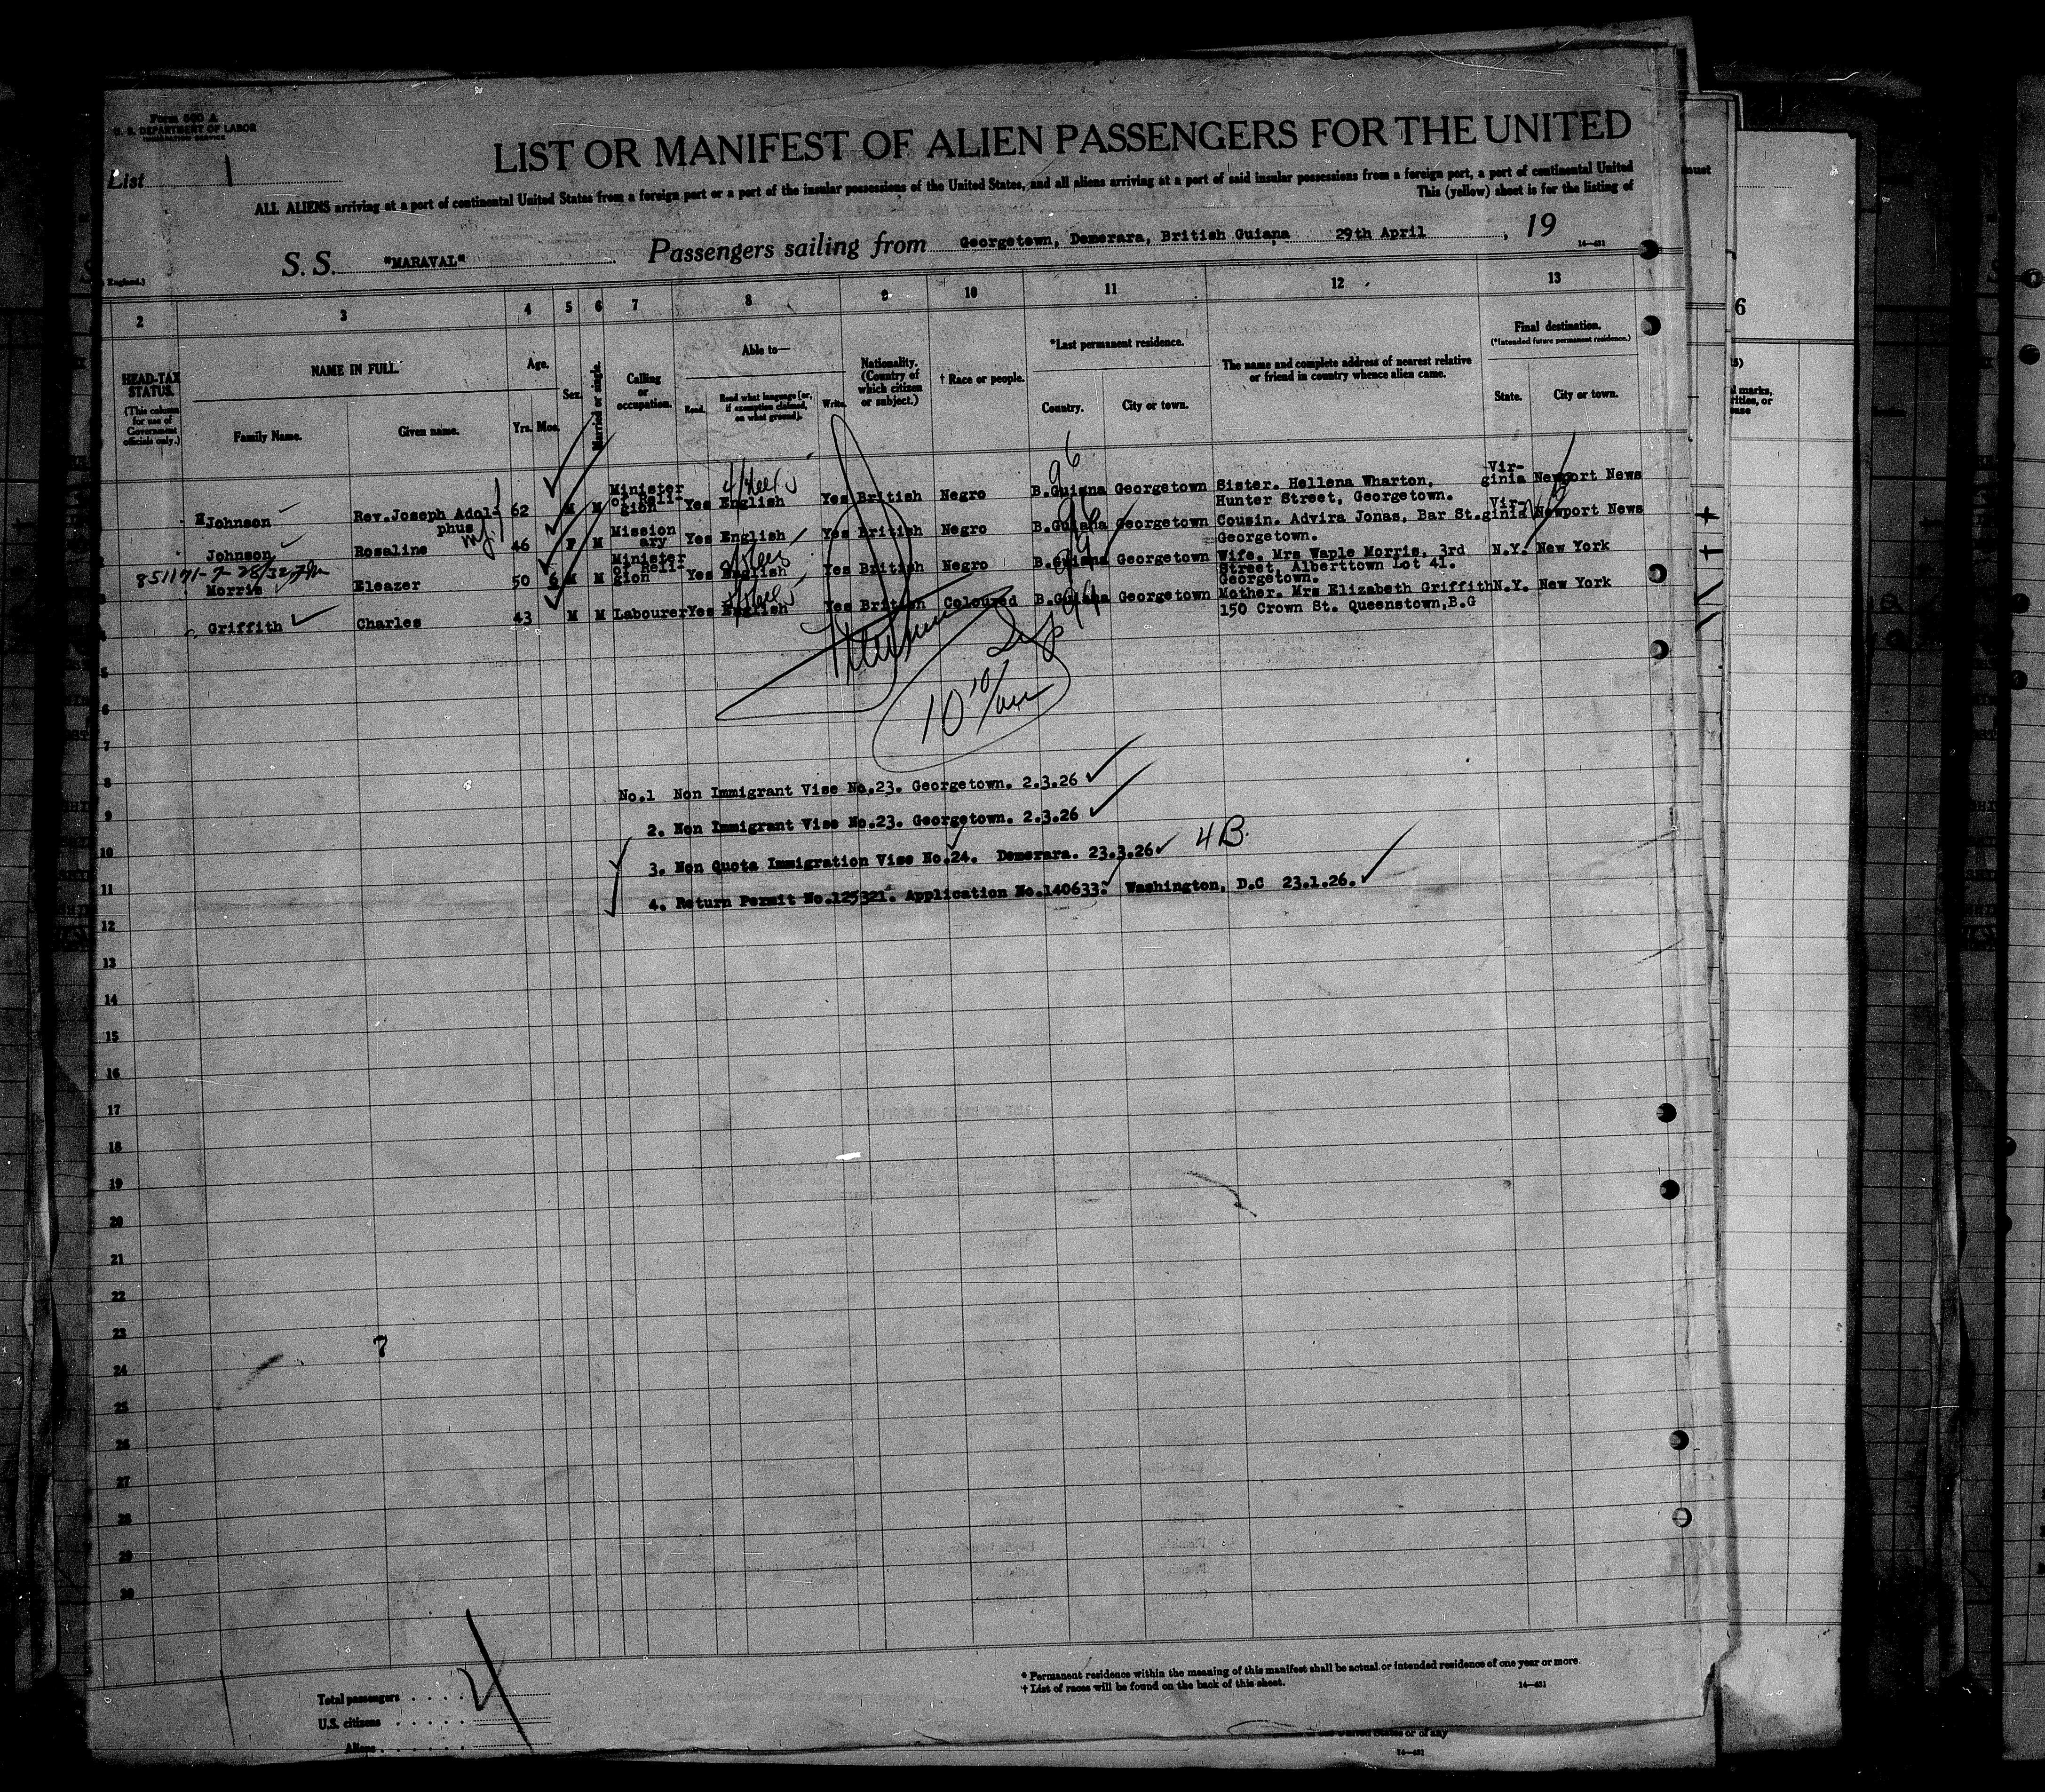 Form 500 A
U. S. DEPARTMENT OF LABOR
IMMIGRATION SERVICE
List 1
LIST OR MANIFEST OF ALIEN PASSENGERS FOR THE UNITED
ALL ALIENS arriving at a port of continental United States from a foreign port or a port of the insular possessions of the United States, and all aliens arriving at a port of said insular possessions from a foreign port, a port of continental United
This (yellow) sheet is for the listing of
S. S. "MARAVAL" Passengers sailing from Georgetown, Demerara, British Guiana 29th April , 19
14-431
England.)
2 3 4 5 6 7 8 9 10 11 12 13
HEAD-TAX STATUS.
(This column for use of Government officials only.)
NAME IN FULL.
Family Name. Given name.
Age.
Yrs. Mos.
Sex.
Married or single.
Calling or occupation.
Able to—
Read. Read what language [or, if exemption claimed, on what ground]. Write.
Nationality. (Country of which citizen or subject.)
† Race or people.
*Last permanent residence.
Country. City or town.
The name and complete address of nearest relative or friend in country whence alien came.
Final destination.
(*Intended future permanent residence.)
State. City or town.
Johnson Rev.Joseph Adolphus 62 M M Minister of Religion Yes English Yes British Negro B.Guiana Georgetown Sister. Hellena Wharton, Hunter Street, Georgetown. Virginia Newport News
Johnson Rosaline 46 F M Missionary Yes English Yes British Negro B.Guiana Georgetown Cousin. Advira Jonas, Bar St. Georgetown. Virginia Newport News
Morris Eleazer 50 6 M M Minister of Religion Yes English Yes British Negro B.Guiana Georgetown Wife. Mrs Waple Morris, 3rd Street, Alberttown Lot 41. Georgetown. N.Y. New York
Griffith Charles 43 M M Labourer Yes English Yes British Coloured B.Guiana Georgetown Mother. Mrs Elizabeth Griffith 150 Crown St. Queenstown,B.G N.Y. New York
96
3
4
5
6
7
8
9
10
11
12
13
14
15
16
17
18
19
20
21
22
23
24
25
26
27
28
29
30
No.1 Non Immigrant Vise No.23. Georgetown. 2.3.26
2. Non Immigrant Vise No.23. Georgetown. 2.3.26
3. Non Quota Immigration Vise No.24. Demerara. 23.3.26 4B.
4. Return Permit No.125321. Application No.140633. Washington, D.C 23.1.26.
Total passengers
U.S. citizens
Aliens
* Permanent residence within the meaning of this manifest shall be actual or intended residence of one year or more.
† List of races will be found on the back of this sheet.
14-431
or of any
14-431
must
6
marks,